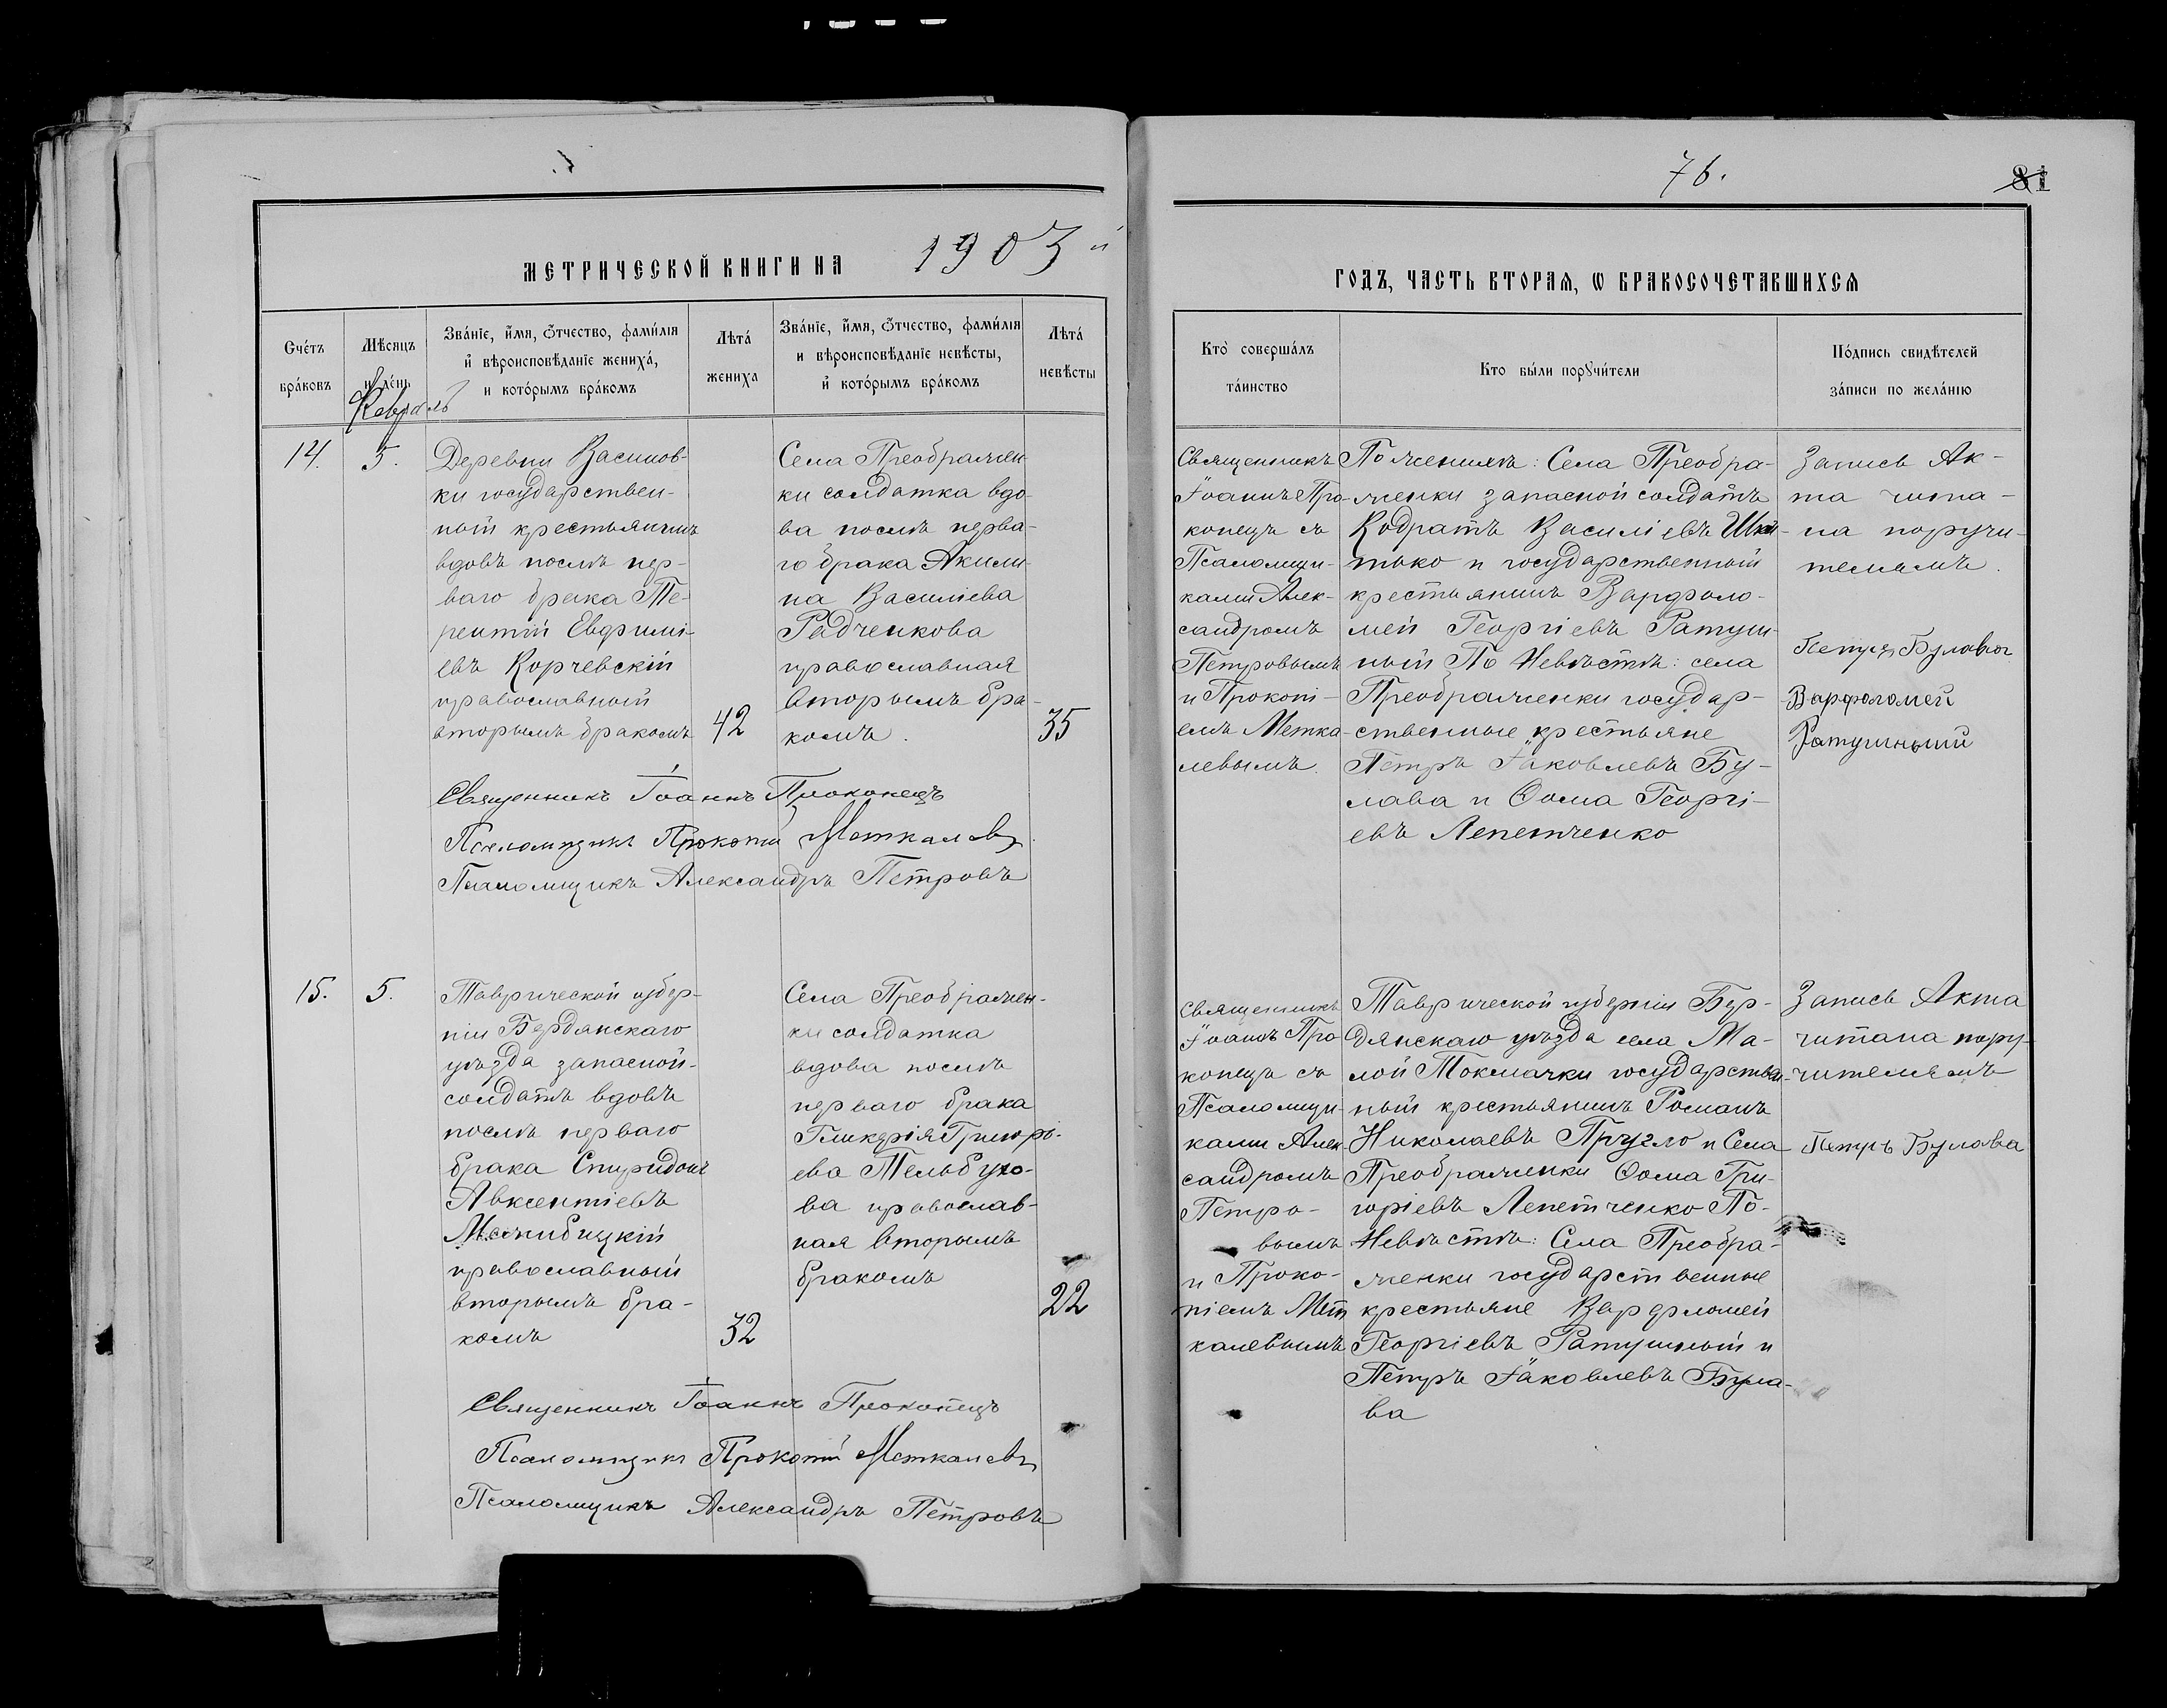 76.
81
МЕТРИЧЕСКОЙ КНИГИ НА 1903 й
ГОДЪ, ЧАСТЬ ВТОРАЯ, Ѡ БРАКОСОЧЕТАВШИХСЯ
Счетъ браковъ
Мѣсяцъ и день
Званіе, имя, ѿчество, фамилія
и вѣроисповѣданіе жениха,
и которымъ бракомъ
Лѣта жениха
Званіе, имя, ѿчество, фамилія
и вѣроисповѣданіе невѣсты,
и которымъ бракомъ
Лѣта невѣсты
Кто совершалъ
таинство
Кто были поручители
Подпись свидѣтелей
записи по желанію
Февраль
14.
5.
Деревни Васинов-
ки государствен-
ный крестьянинъ
вдовъ послѣ пер-
ваго брака Те-
рентій Евфимі-
евъ Корчевскій
православный
вторымъ бракомъ
42
Села Преображен
ки солдатка вдо-
ва послѣ перва-
го брака Акили-
на Василіева
Радченкова
православная
вторымъ бра-
комъ.
35
Священникъ
Іоаннъ Про-
копецъ съ
Псаломщи-
ками Алек-
сандромъ
Петровымъ
и Прокопі-
емъ Метка-
левымъ.
По женихѣ: Села Преобра-
женки запасной солдатъ
Кодратъ Василіевъ
тько и государственный
крестьянинъ Варфоло-
мей Георгіевъ Ратуш-
ный По Невѣстѣ: села
Преображенки государ-
ственные крестьяне
Петръ Іаковлевъ Бу-
лава и Ѳома Георгі-
евъ Лепетченко
Запись Ак-
та чита-
на поручи-
телямъ.
Петръ Булава
Варфоломей
Ратушный
Священникъ Іоаннъ Прокопецъ
Псаломщикъ Прокопій Меткалевъ
Псаломщикъ Александръ Петровъ
15.
5.
Таврической губер-
ніи Бердянскаго
уѣзда запасной
солдатъ вдовъ
послѣ перваго
брака Спиридонъ
Авксентіевъ
православный
вторымъ бра-
комъ
32
Села Преображен-
ки солдатка
вдова послѣ
перваго брака
Гликерія Григорі-
ева Тельбухо-
ва православ-
ная вторымъ
бракомъ
22
Священникъ
Іоаннъ Про
копецъ съ
Псаломщи-
ками Алек
сандромъ
Петро-
вымъ
и Проко-
піемъ Мет
калевымъ
Таврической губерніи Бер-
дянскаго уѣзда села Ма-
лой Токмачки государствен-
ный крестьянинъ Романъ
Николаевъ Пругло и Села
Преображенки Ѳома Гри-
горіевъ Лепетченко По-
Невѣстѣ: Села Преобра-
женки государственные
крестьяне Варфломей
Георгіевъ Ратушный и
Петръ Іаковлевъ Була-
ва
Запись Акта
читана пору-
чителямъ
Петръ Булава
Священникъ Іоаннъ Прокопецъ
Псаломщикъ Прокопій Меткалевъ
Псаломщикъ Александръ Петровъ